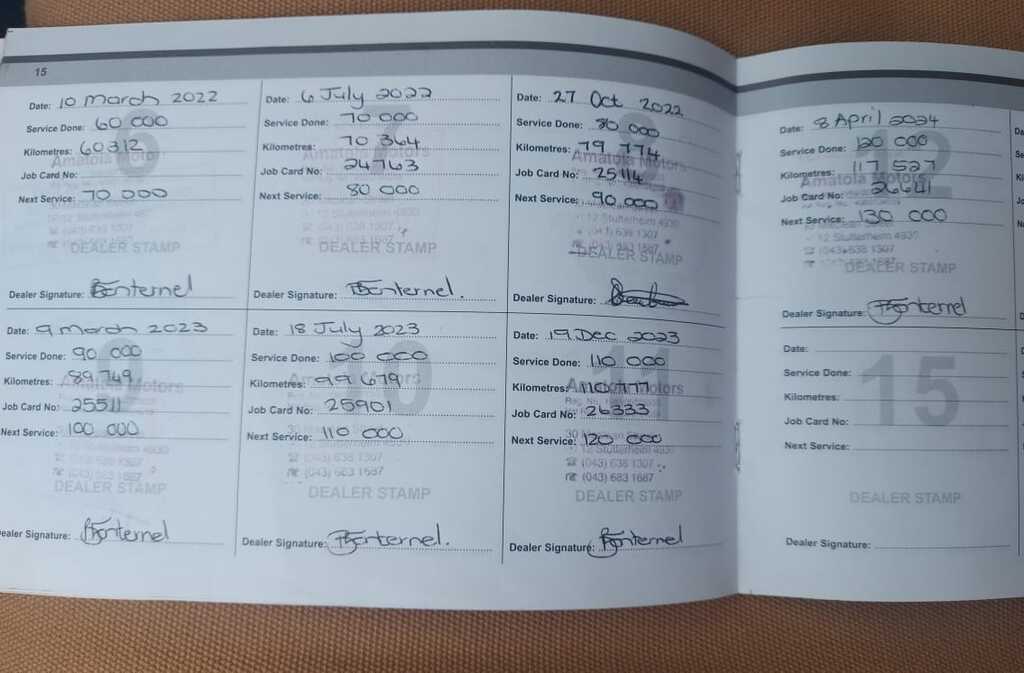 15
Date: 10 March 2022
Service Done: 60 000
Kilometres: 60312
Amatola Motors
Job Card No:
Next Service: 70 000
(043) 638 1307
DEALER STAMP
Dealer Signature:
Date: 6 July 2022
Service Done: 70 000
Kilometres: 70 364
Amatola Motors
Job Card No: 24763
Next Service: 80 000
12 Stutterheim 4930
(043) 638 1307
DEALER STAMP
Dealer Signature:
8
Date: 27 Oct 2022
Service Done: 80 000
Kilometres: 79 774
Amatola Motors
Job Card No: 25114
Next Service: 90.000
12 Stutterheim 4930
(043) 638 1307
(043) 683 1687
DEALER STAMP
Dealer Signature:
9
Date: 9 March 2023
Service Done: 90 000
Kilometres: 89749
Amatola Motors
Job Card No: 25511
Next Service: 100 000
12 Stutterheim 4930
(043) 638 1307
(043) 683 1687
DEALER STAMP
Dealer Signature:
10
Date: 18 July 2023
Service Done: 100 000
Kilometres: 99 679
Job Card No: 25901
Next Service: 110 000
(043) 638 1307
(043) 683 1687
DEALER STAMP
Dealer Signature:
11
Date: 19 Dec 2023
Service Done: 110 000
Kilometres: 110 777
Amatola Motors
Job Card No: 26333
Next Service: 120 000
12 Stutterheim 4930
(043) 638 1307
(043) 683 1687
DEALER STAMP
Dealer Signature:
12
Date: 8 April 2024
Service Done: 120 000
Kilometres: 117 527
Amatola Motors
Job Card No: 26641
Next Service: 130 000
12 Stutterheim 4930
(043) 638 1307
DEALER STAMP
Dealer Signature:
15
Date:
Service Done:
Kilometres:
Job Card No:
Next Service:
DEALER STAMP
Dealer Signature: